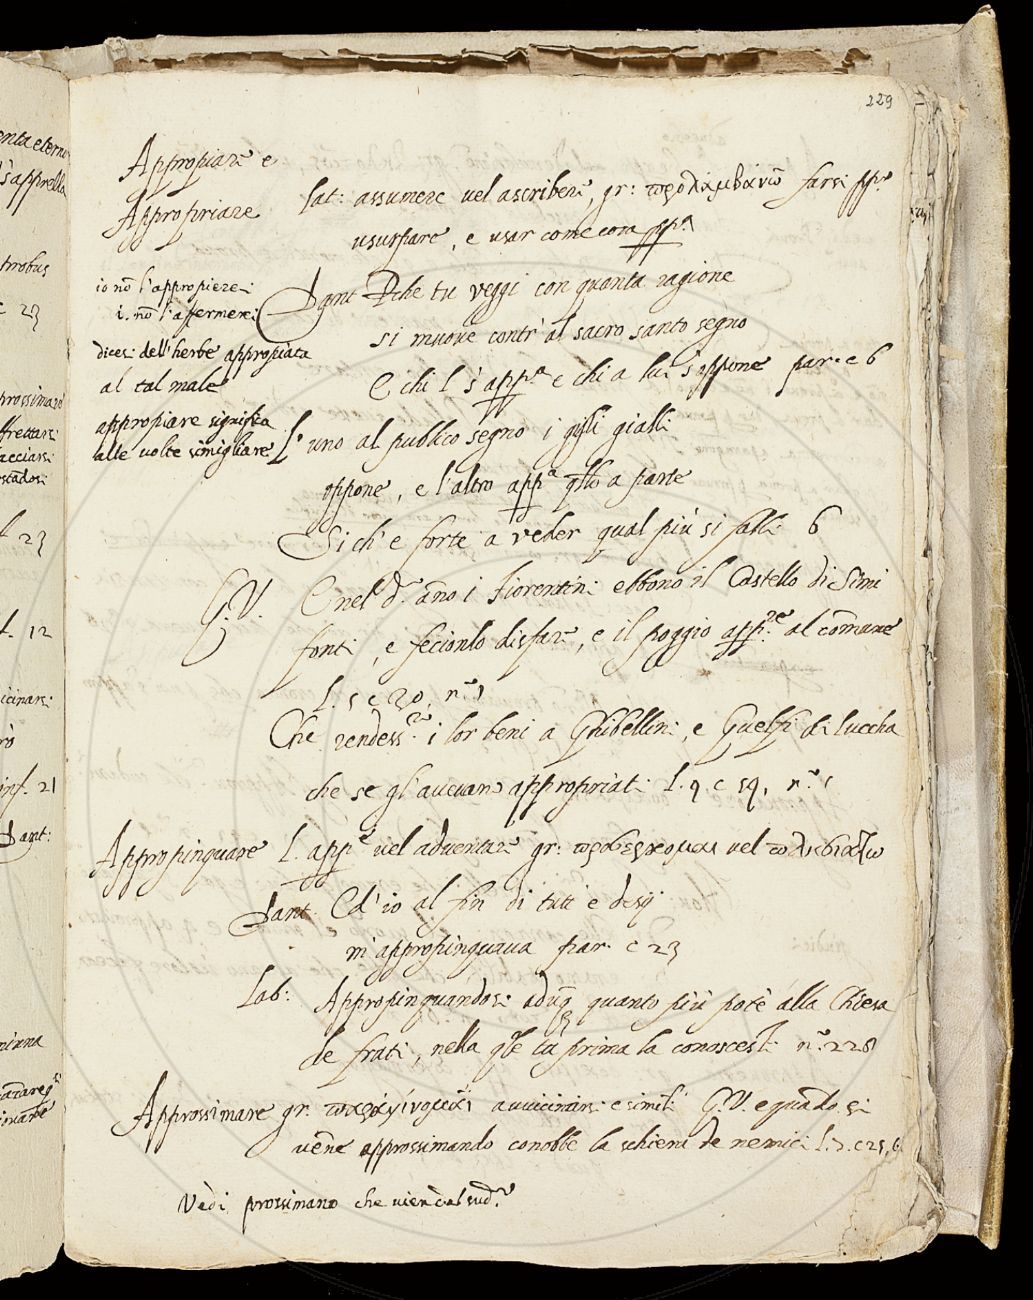 229
Appropiare e
Appropriare
lat: assumere vel ascribere, gr: προλαμβάνω farsi ppr.o
usurpare, e usar come cosa ppr.a
io nō l'appropierei
i. nō l'affermerei
dicesi dell'herbe appropiata
al tal male
appropiare significa
alle volte simigliare
Dant Pche tu veggi con quanta ragione
si muove contr'al sacro santo segno
E chi l s'app.a e chi a lui s'oppone par. c 6
L'uno al publico segno i gigli gialli
oppone, e l'altro app.a qllo a parte
Sich'e forte a veder qual più si falli 6
G.V. E nel d.o āno i Fiorentini ebbono il Castello di Simi
fonti, e fecionlo disfare, e il poggio app.re al comune
l. 5 c 30, n.o 1
Che rendess.ro i lor beni a Ghibellini, e Guelfi di luccha
che se gl'avevano appropriati l. 9 c 59, n.o 1
Appropinquare l. app.e vel adventare gr: προσέρχομαι vel πλησιάζω
Dant. Ed'io al fin di tutt'e desij
m'appropinquava par. c 23
Lab: Appropinquandosi aduq quanto più potè alla Chiesa
de frati, nella qle tu prima la conoscesti n.o 228
Approssimare gr. παραγίνομαι avvicinarsi e simili G.V. e quando si
vēne approssimando conobbe la schiera de nemici l. 7. c 25, 6
Vedi prossimano che vien dal sud.o
enta eterno
s'apprella
c 23
prossimare
affrettarsi
acciarsi
23
l. 12
vicinarsi
inf. 21
Dant: